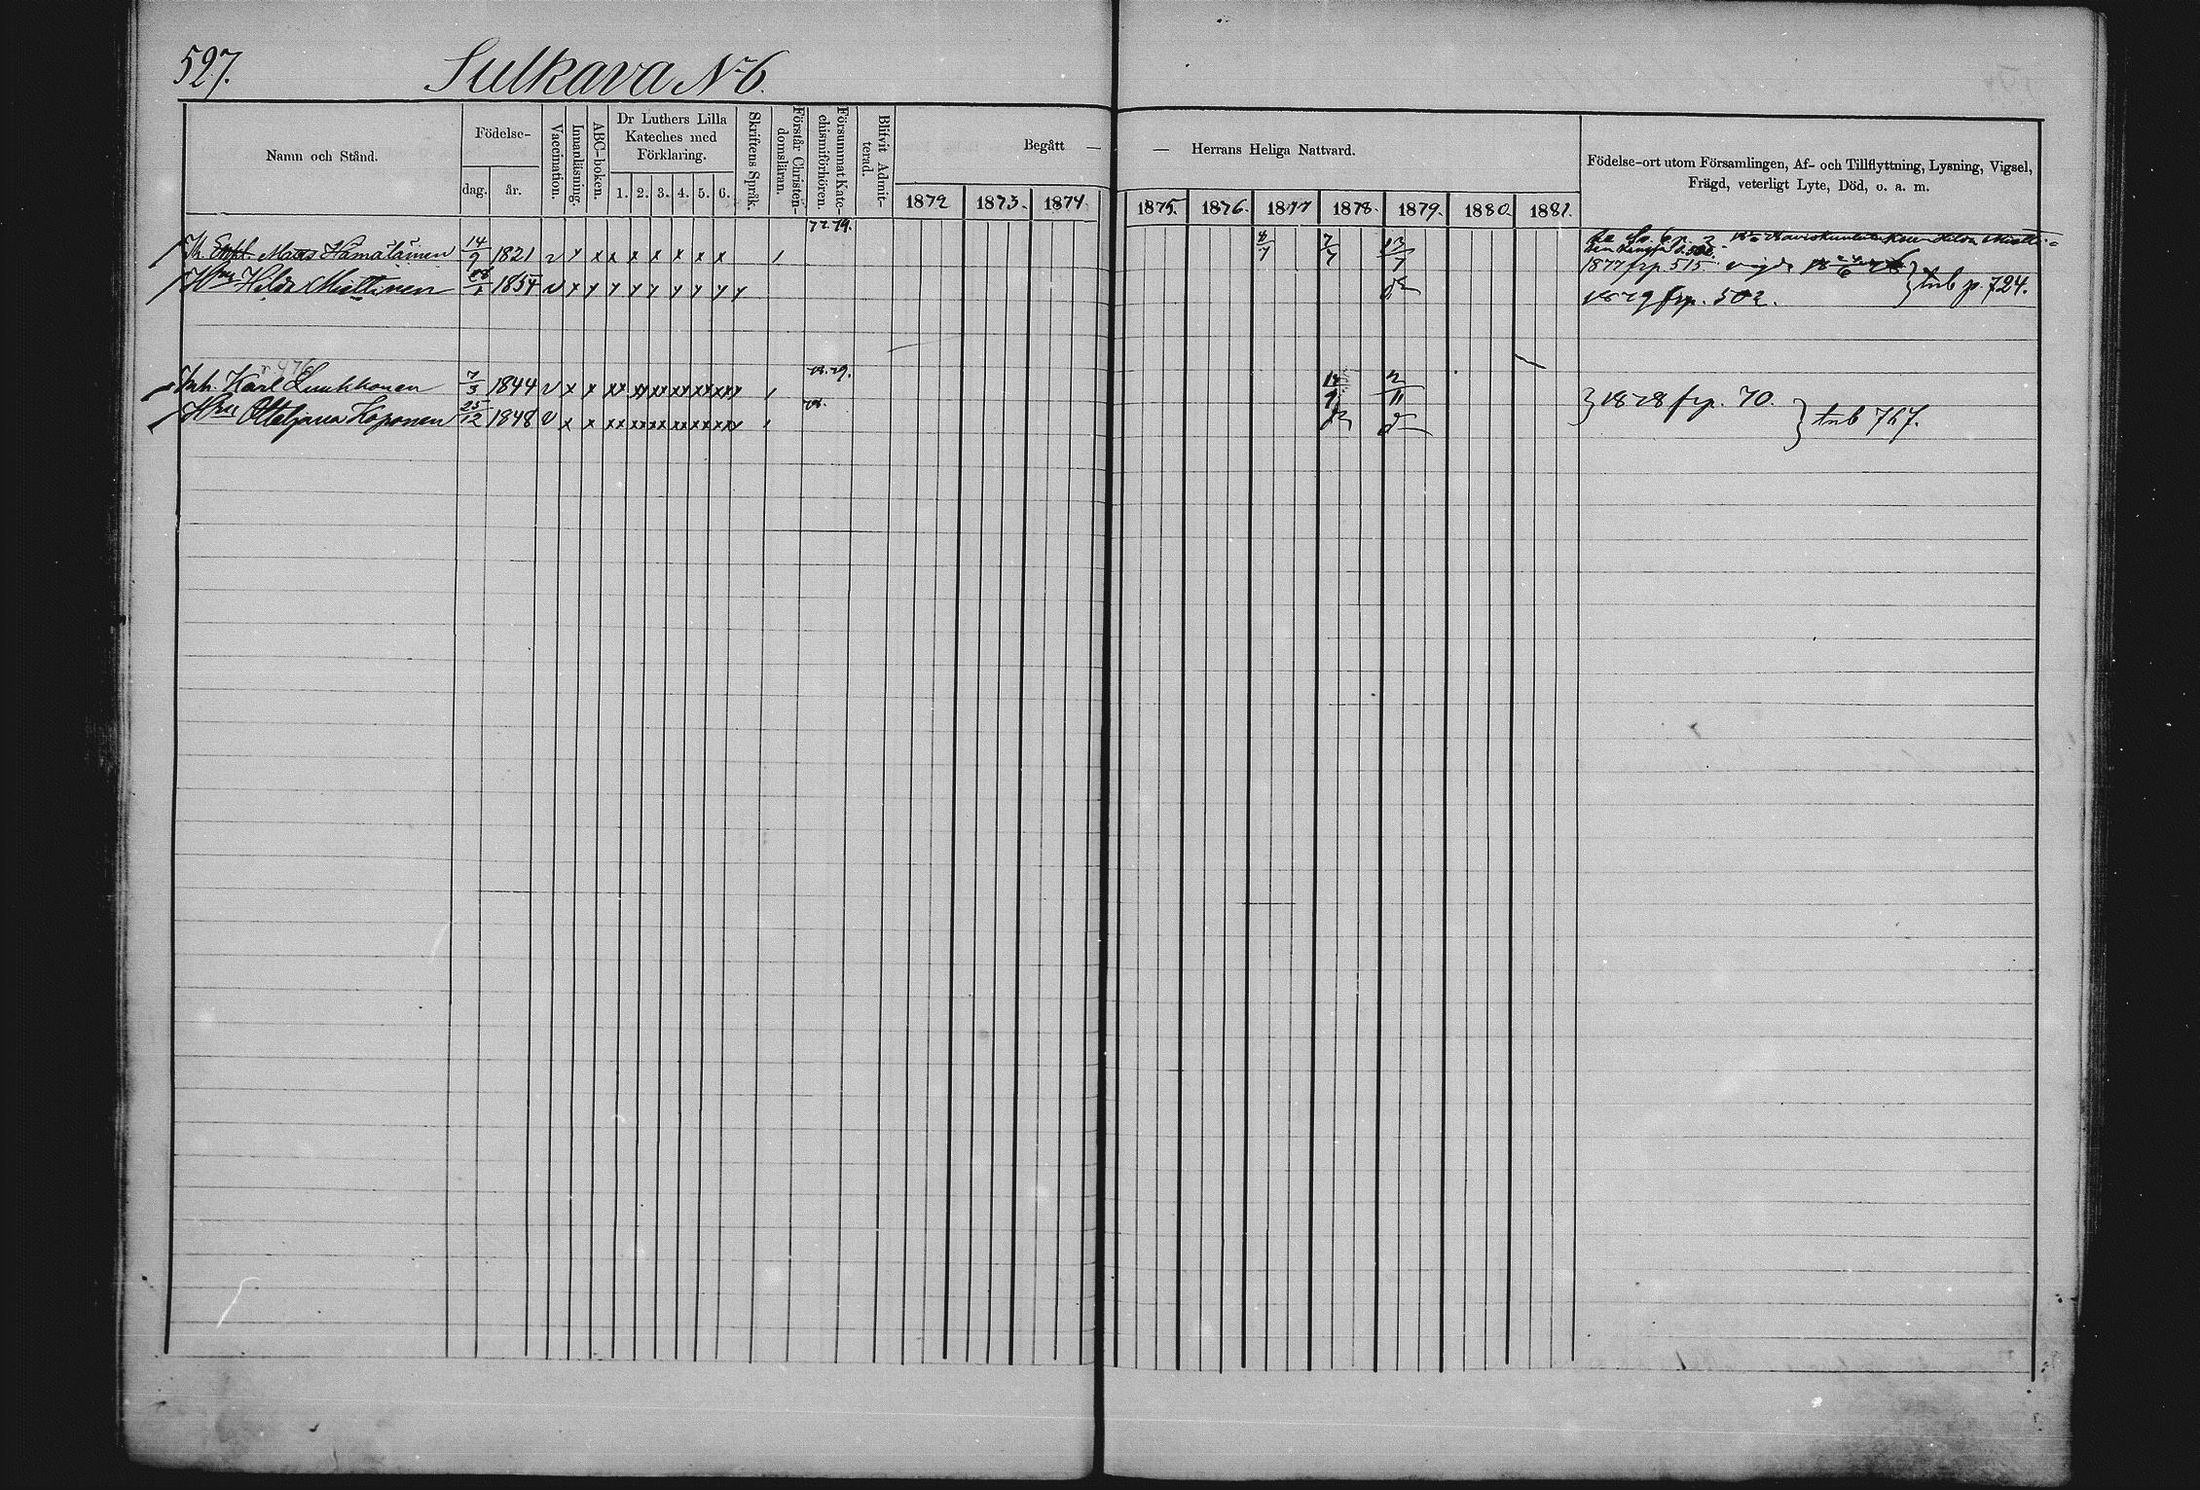 527.
Sulkava No 6.
Namn och Stånd.
Födelse-
dag. år.
Vaccination.
Innanläsning.
ABC-boken.
Dr Luthers Lilla
Kateches med
Förklaring.
1. 2. 3. 4. 5. 6.
Skriftens Språk.
Förstår Christen-
domsläran.
Försummat Kate-
chismiförhören.
Blifvit Admit-
terad.
Begått — — Herrans Heliga Nattvard.
1872 1873. 1874. 1875. 1876. 1877 1878. 1879. 1880. 1881.
Födelse-ort utom Församlingen, Af- och Tillflyttning, Lysning, Vigsel,
Frägd, veterligt Lyte, Död, o. a. m.
77. 79.
Matts Hämäläinen 14/9 1821 v x x x x x x x x 8/7 7/7 13/7
1877 frp 515 vigde
Hru Hilda Miettinen 1854 v x y y y y y y y y
1879 frp. 502. } tnb p. 724.
476
78. 79.
Inh. Karl Luukkonen 7/3 1844 v x x xx xx xx xx xx xx
} 1878 frp. 70.
78.
Hru Otteljana Koponen 25/12 1848 v x x xx xx xx xx xx xx
} tnb 767.